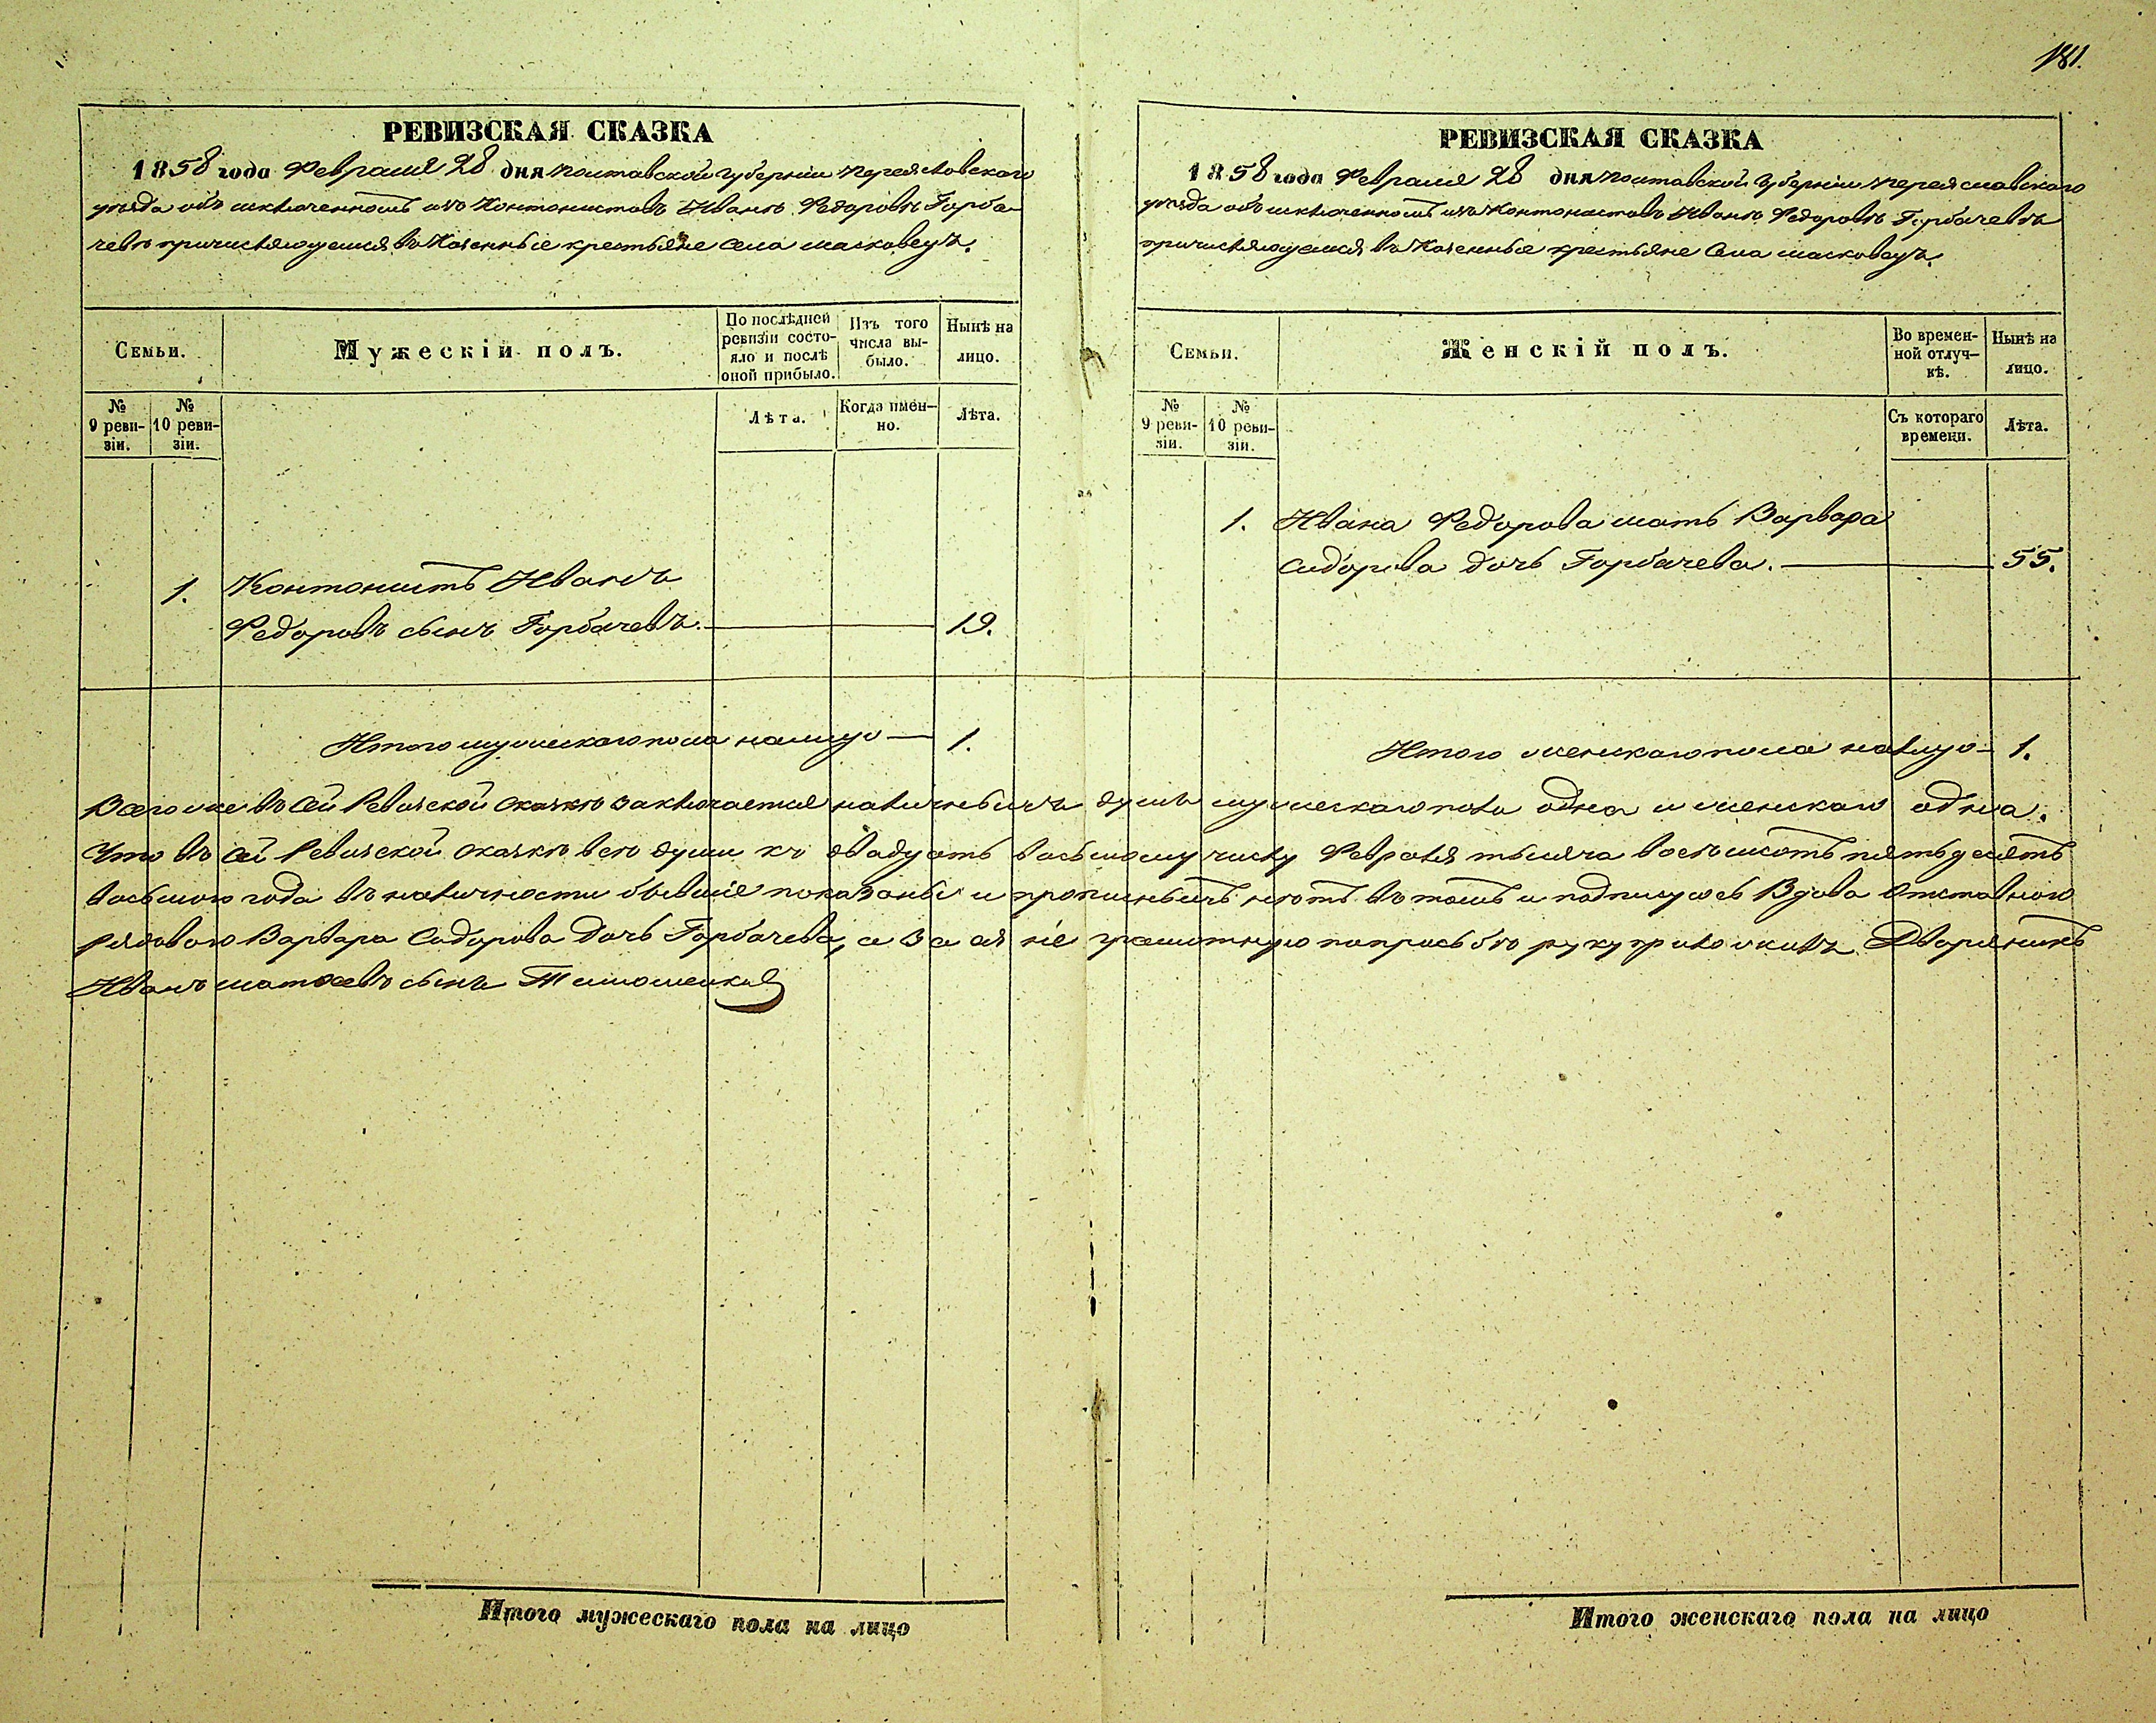 181.
РЕВИЗСКАЯ СКАЗКА
1858 года Февраля 28 дня Полтавской Губерніи Переяславскаго
уѣзда объ исключенномъ изъ Контонистовъ Иванѣ Федоровѣ Горба-
чевѣ причисляющемся въ Казенные крестьяне Села Масковецъ.
Семьи.
Мужескій полъ.
По послѣдней ревизіи состо-яло и послѣ оной прибыло.
Изъ того числа вы-было.
Нынѣ на лицо.
№ 9 реви-зіи.
№ 10 реви-зіи.
Лѣта.
Когда имен-но.
Лѣта.
1. Контонистъ Иванъ
Федоровъ сынъ Горбачевъ. 19.
Итого мужескаго пола налицо 1.
РЕВИЗСКАЯ СКАЗКА
1858 года Февраля 28 дня Полтавской Губерніи Переяславскаго
уѣзда объ исключенномъ изъ Контонистовъ Иванѣ Федоровѣ Горбачевѣ
причисляющемся въ Казенные крестьяне Села Масковецъ.
Семьи.
Женскій полъ.
Во времен-ной отлуч-кѣ.
Нынѣ на лицо.
№ 9 реви-зіи.
№ 10 реви-зіи.
Съ котораго времени.
Лѣта.
1. Ивана Федорова мать Варвара
Сидорова дочь Горбачева. 55.
Итого женскаго пола налицо 1.
Всего же въ сей Ревизской сказкѣ заключается наличныхъ душъ мужескаго пола одна и женскаго одна.
Что въ сей Ревизской сказкѣ всѣ души къ двадцать восьмому числу Февраля тысяча восемьсотъ пятьдесятъ
восьмого года въ наличности бывшіе показаны и прописныхъ нѣтъ въ томъ и подпишусь Вдова отставного
рядового Варвара Сидорова Дочь Горбачева, а за ея не грамотную по просьбѣ руку приложилъ Дворянинъ
Иванъ Матвѣевъ сынъ Тимошенко
Итого мужескаго пола на лицо
Итого женскаго пола на лицо